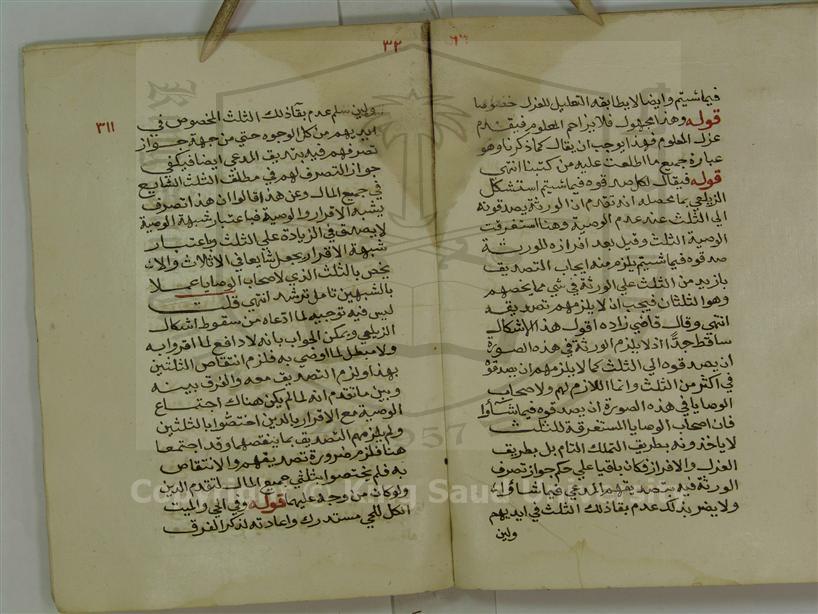 ٦٦
فيما شيتم وايضا لا يطابقه التعليل للعزل خصوصا
قوله وهذا مجهول فلا يزاحم المعلوم فيقدم
عزل المعلوم فهذا يوجب ان يقال كما ذكرنا وهو
عبارة جميع ما اطلعت عليه من كتبنا انتهى
قوله فيقال لكل صدقوه فيما شيتم استشكل
الزيلعي بما محصله انه تقدم ان الورثة يصدقونه
الى الثلث عند عدم الوصية وهنا استغرقت
الوصية الثلث وقيل بعد افرازه للورثة
صدقوه فيما شيتم يلزم منه ايجاب التصديق
بازيد من الثلث على الورثة في شي مما يخصهم
وهو الثلثان فيجب ان لا يلزمهم تصديقه
انتهى وقال قاضي زاده اقول هذا الاشكال
ساقط جدا اذ لا يلزم الورثة في هذه الصورة
ان يصدقوه الى الثلث كما لا يلزمهم ان يصدقوه
في اكثر من الثلث وانما اللازم لهم ولاصحاب
الوصايا في هذه الصورة ان يصدقوه فيما شاؤا
فان اصحاب الوصايا المستغرقة للثلث
لا ياخذونه بطريق التملك التام بل بطريق
العزل والافراز فكان باقيا على حكم جواز تصرف
الورثة فيه بتصديقهم المدعي فيما شاؤا
ولا يضر بذلك عدم بقا ذلك الثلث في ايديهم
ولين
٣٢
٣١١
ولين سلم عدم بقا ذلك الثلث المخصوص في
ايديهم من كل الوجوه حتى من جهة جواز
تصرفهم فيه بتصديق المدعي ايضا فيكفي
جواز التصرف لهم في مطلق الثلث الشايع
في جميع المال وعن هذا قالوا ان هذا تصرف
يشبه الاقرار والوصية فباعتبار شبهة الوصية
لا يصدق في الزيادة على الثلث وباعتبار
شبهة الاقرار يجعل شايعا في الاثلاث ولا
يخص بالثلث الذي لاصحاب الوصايا عملا
بالشبهين تامل ترشد انتهى قلت
ليس فيه توجيه لما ادعاه من سقوط اشكال
الزيلعي ويمكن الجواب بانه لا دافع لما اقروا به
ولا مبطل لما اوصي به فلزم انتقاص الثلثين
بهذا ولزم التصديق معه والفرق بينه
وبين ما تقدم انه لما لم يكن هناك اجتماع
الوصية مع الاقرار بالدين اختصوا بالثلثين
ولم يلزمهم التصديق بما ينقصها وقد اجتمعا
هنا فلزم ضرورة تصديقهم والانتقاص
به فلم يختصوا بثلثي جميع المال لتقدم الدين
ولو كان من وجه عليها قوله وفي الحي والميت
الكل للحي مستدرك واعادته لذكر الفرق